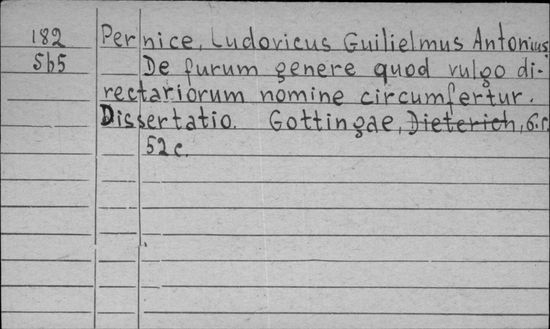 182 Pernice, Ludovicus Guilielmus Antonius.
5b5 De furum genere quod vulgo di-
rectariorum nomine circumfertur.
Dissertatio. Gottingae, Dieterich, б.г.
52 c.